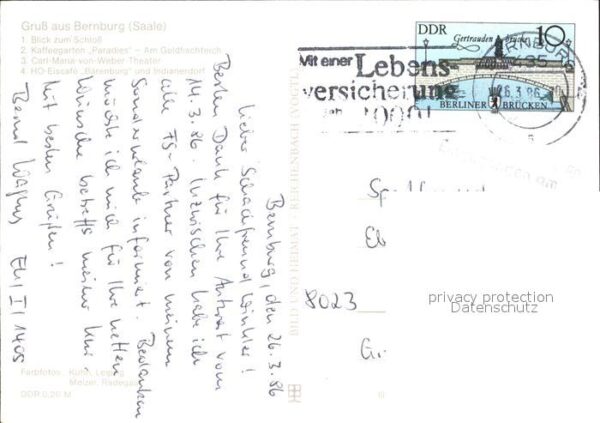 Gruß aus Bernburg (Saale)
1. Blick zum Schloß
2. Kaffeegarten „Paradies" – Am Goldfischteich
3. Carl-Maria-von-Weber-Theater
4. HO-Eiscafé „Bärenburg" und Indianerdorf
Bernburg, den 26.3.86
Lieber Schachfreund Winkler!
Besten Dank für Ihre Antwort vom
14.3.86. Inzwischen habe ich
alle FS-Partner von meinem
Sonderurlaub informiert. Bedanken
möchte ich mich für Ihre netten
Wünsche betreffs meiner Kur
Mit besten Grüßen!
Bernd
Farbfotos: Kühn, Leipzig
Melzer, Radegast
DDR 0,20 M
BILD UND HEIMAT REICHENBACH (VOGTL)
DDR
10
Gertraudenbrücke
BERLINER BRÜCKEN
Mit einer
Lebens-
versicherung
BERNBURG
435
26.3.86
Sp
Eb
8023
Gr.
privacy protection
Datenschutz